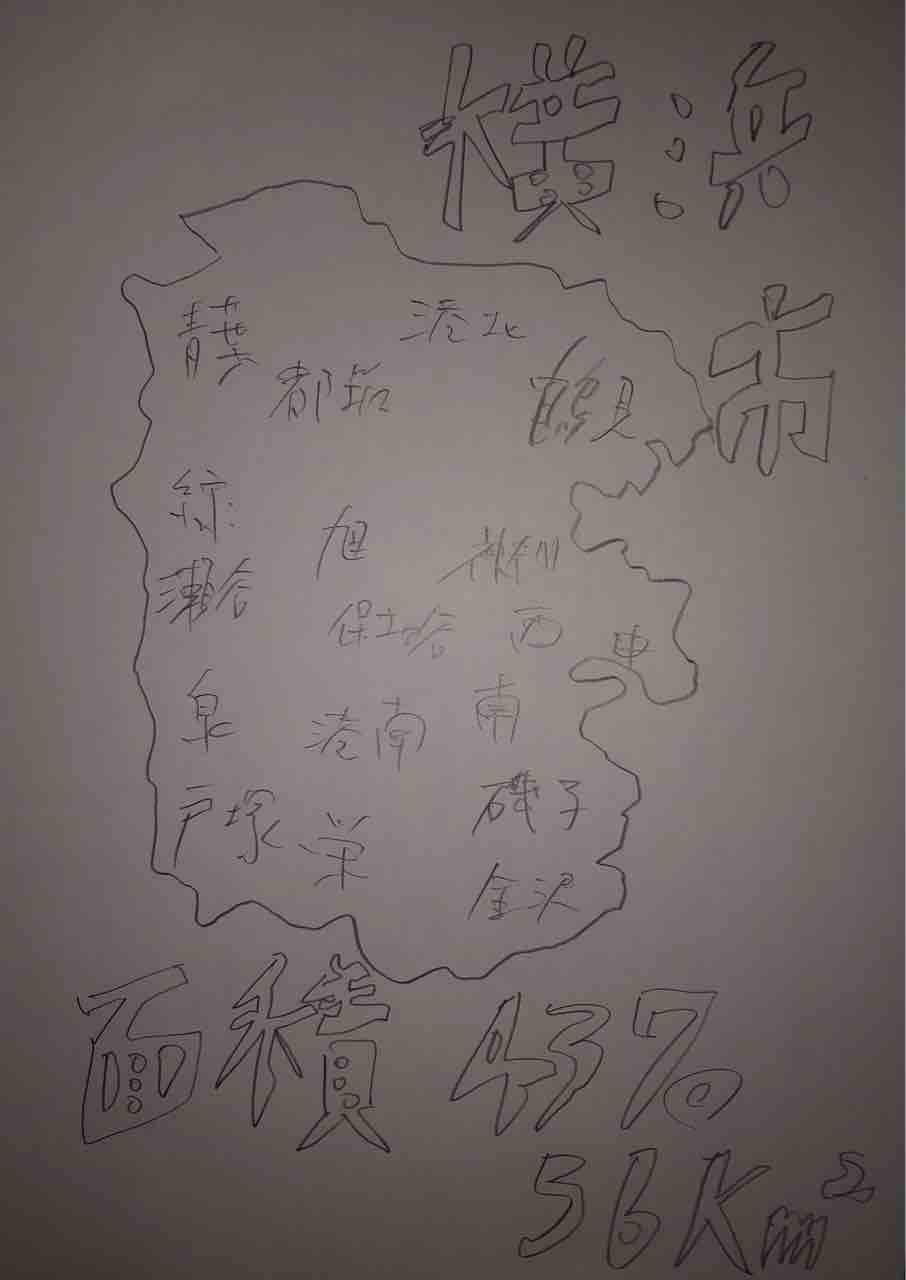 横浜
市
青葉
港北
都筑
鶴見
緑
旭
神奈川
瀬谷
保土ケ谷
西
中
泉
港南
南
戸塚
栄
磯子
金沢
面積 437.
56Km²